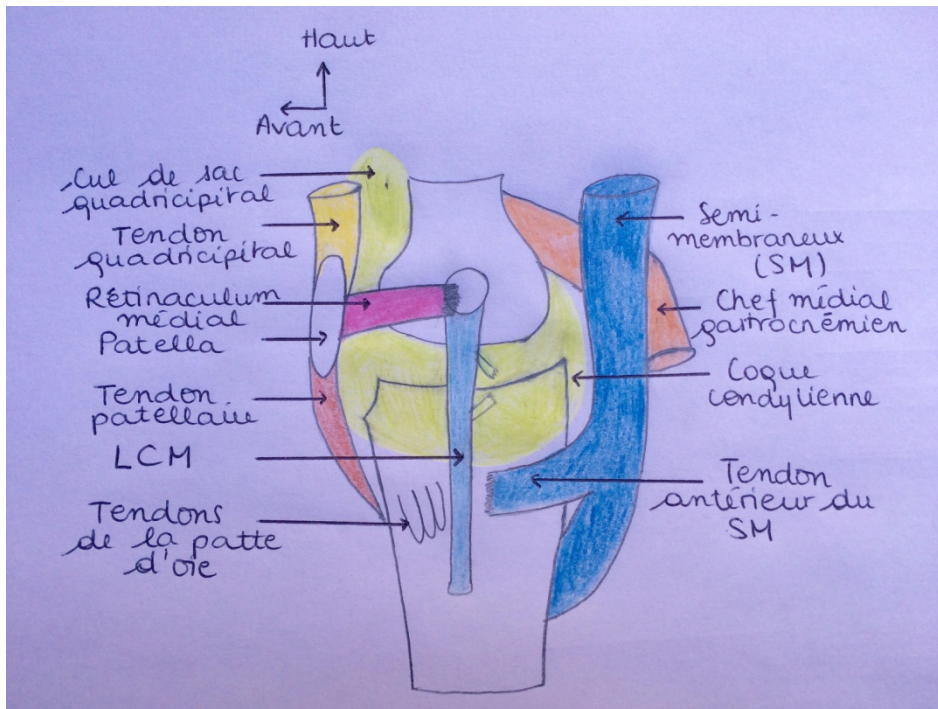 Haut
Avant
Cul de sac
quadricipital
Tendon
quadricipital
Rétinaculum
médial
Patella
Tendon
patellaire
LCM
Tendons
de la patte
d'oie
Semi-
membraneux
(SM)
Chef médial
gastrocnémien
Coque
condylienne
Tendon
antérieur du
SM